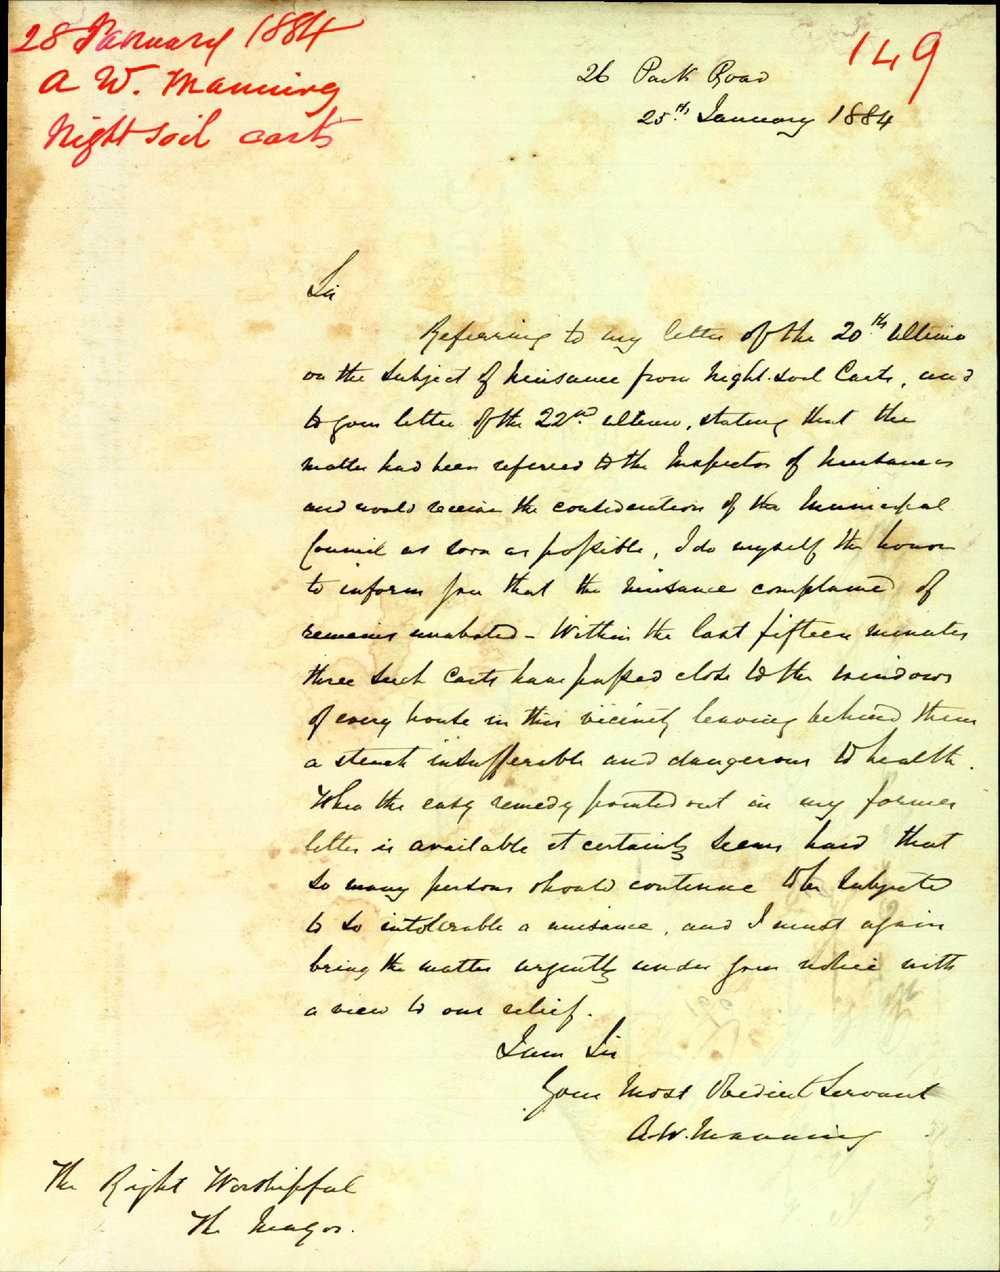 28 January 1884
A W. Manning
Night soil carts
149
26 Park Road
25th January 1884
Sir
Referring to my letter of the 20th Ultimo
on the subject of Nuisance from Night-soil Carts, and
to your letter of the 22nd ultimo, stating that the
matter had been referred to the Inspector of Nuisances
and would receive the consideration of the Municipal
Council as soon as possible, I do myself the honor
to inform you that the nuisance complained of
remains unabated - Within the last fifteen minutes
three such carts have passed close to the windows
of every house in this vicinity leaving behind them
a stench insufferable and dangerous to health.
When the easy remedy pointed out in my former
letter is available it certainly seems hard that
so many persons should continue to be subjected
to so intolerable a nuisance, and I must again
bring the matter urgently under your notice with
a view to our relief.
I am Sir
Your Most Obedient Servant
A.W. Manning
The Right Worshipful
The Mayor.